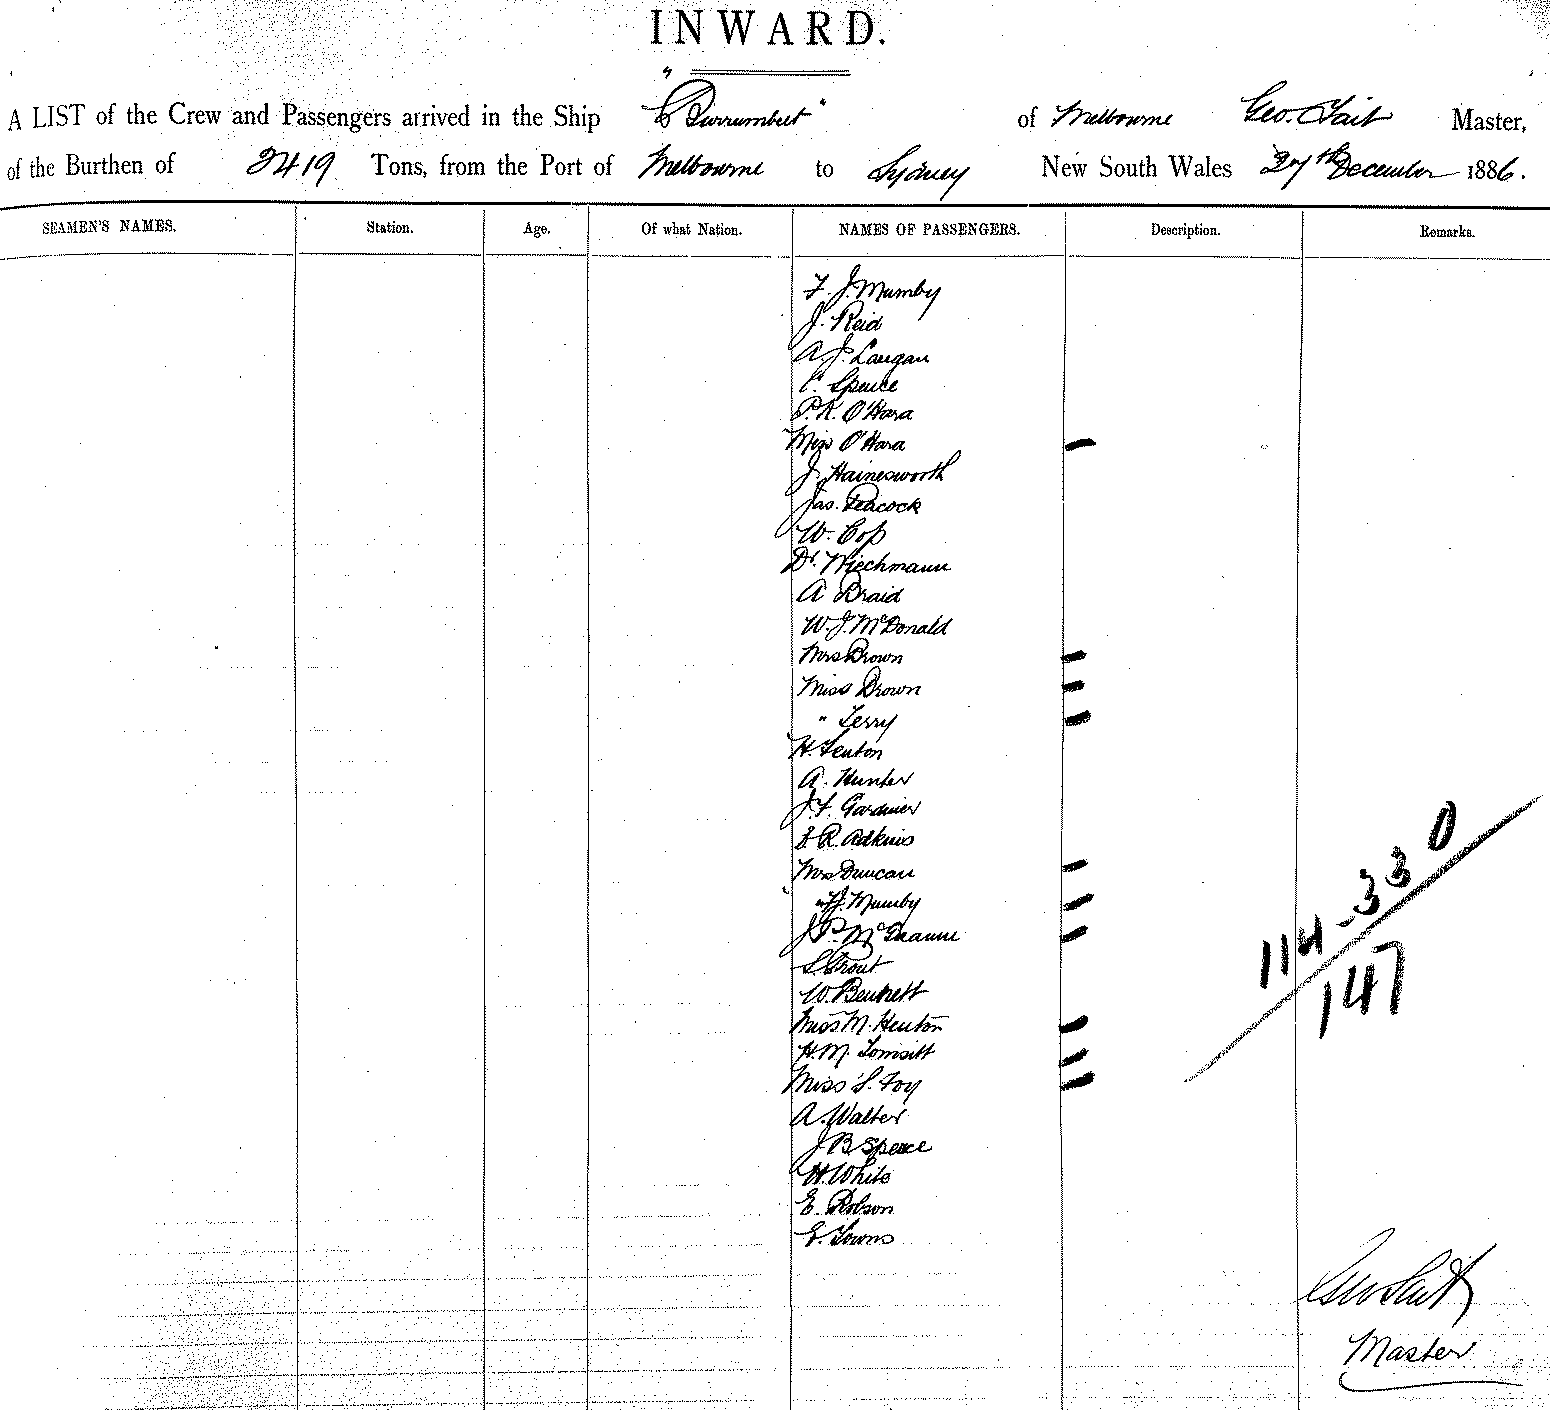 INWARD.
A LIST of the Crew and Passengers arrived in the Ship "Burrumbeet" of Melbourne Geo. Tait Master,
of the Burthen of 2419 Tons, from the Port of Melbourne to Sydney New South Wales 27th December 1886.
SEAMEN'S NAMES. Station. Age. Of what Nation. NAMES OF PASSENGERS. Description. Remarks.
F. J. Mumby
J. Reid
A. J. Langan
C. Spence
P. K. O'Hara
Miss O'Hara
J. Hainesworth
Jas. Peacock
W. Cop
Dr. Wiechmann
A Braid
W. J. McDonald
Mrs Brown
Miss Brown
" Terry
H. Fenton
A. Hunter
J. F. Gardner
R. Adkins
Mrs Duncan
" F J. Mumby
J. P. Mc
S. Prout
W. Bennett
Miss M. Henton
H. M.
Miss S. Foy
A. Walter
J B Spence
H. White
E. Robson
E. Towns
114-33 0
147
Geo Tait
Master